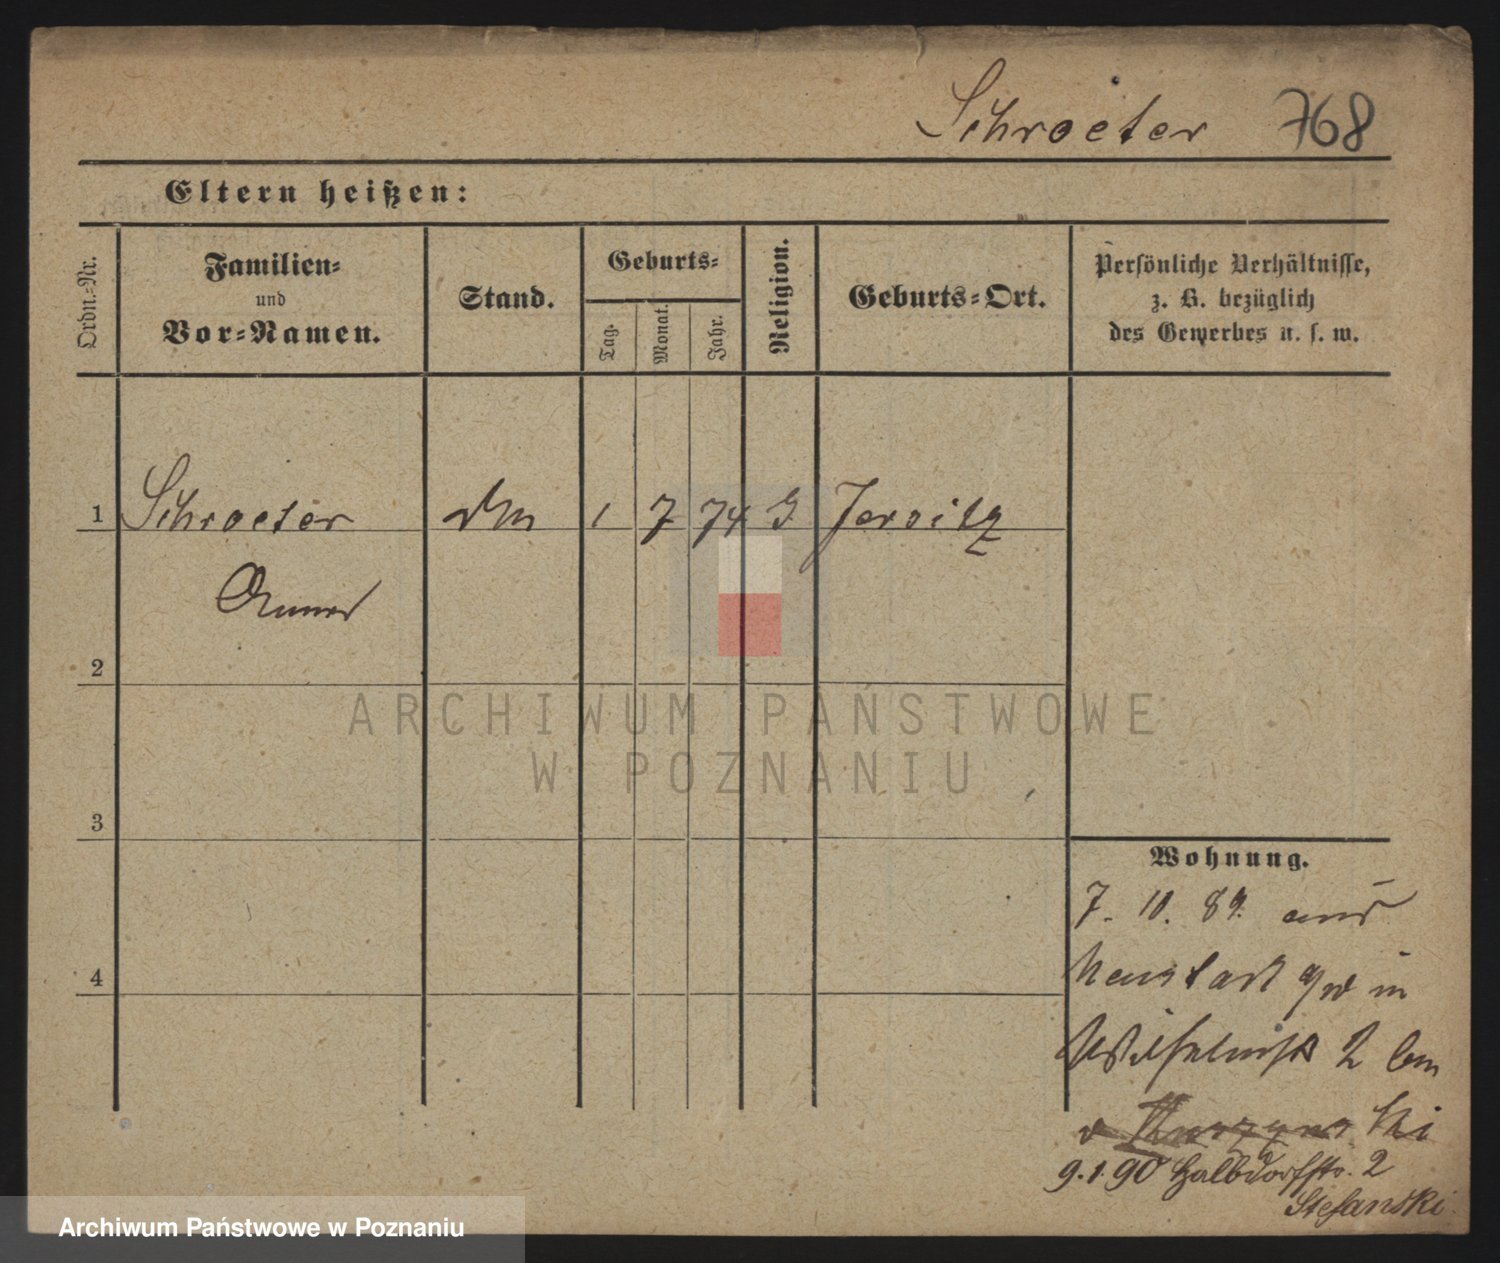 Schroeter 768
Eltern heißen:
Ordn.-Nr.
Familien-
und
Vor-Namen.
Stand.
Geburts-
Tag.
Monat.
Jahr.
Religion.
Geburts-Ort.
Persönliche Verhältnisse,
z. B. bezüglich
des Gewerbes u. s. w.
1 Schroeter 1 7 74 Jersitz
Anna
2
3
4
Wohnung.
7. 10. 89. aus
Neustadt in
2 bm
ski
9.1.90 Halbdorfstr. 2
Stefanski
ARCHIWUM PAŃSTWOWE
W POZNANIU
Archiwum Państwowe w Poznaniu